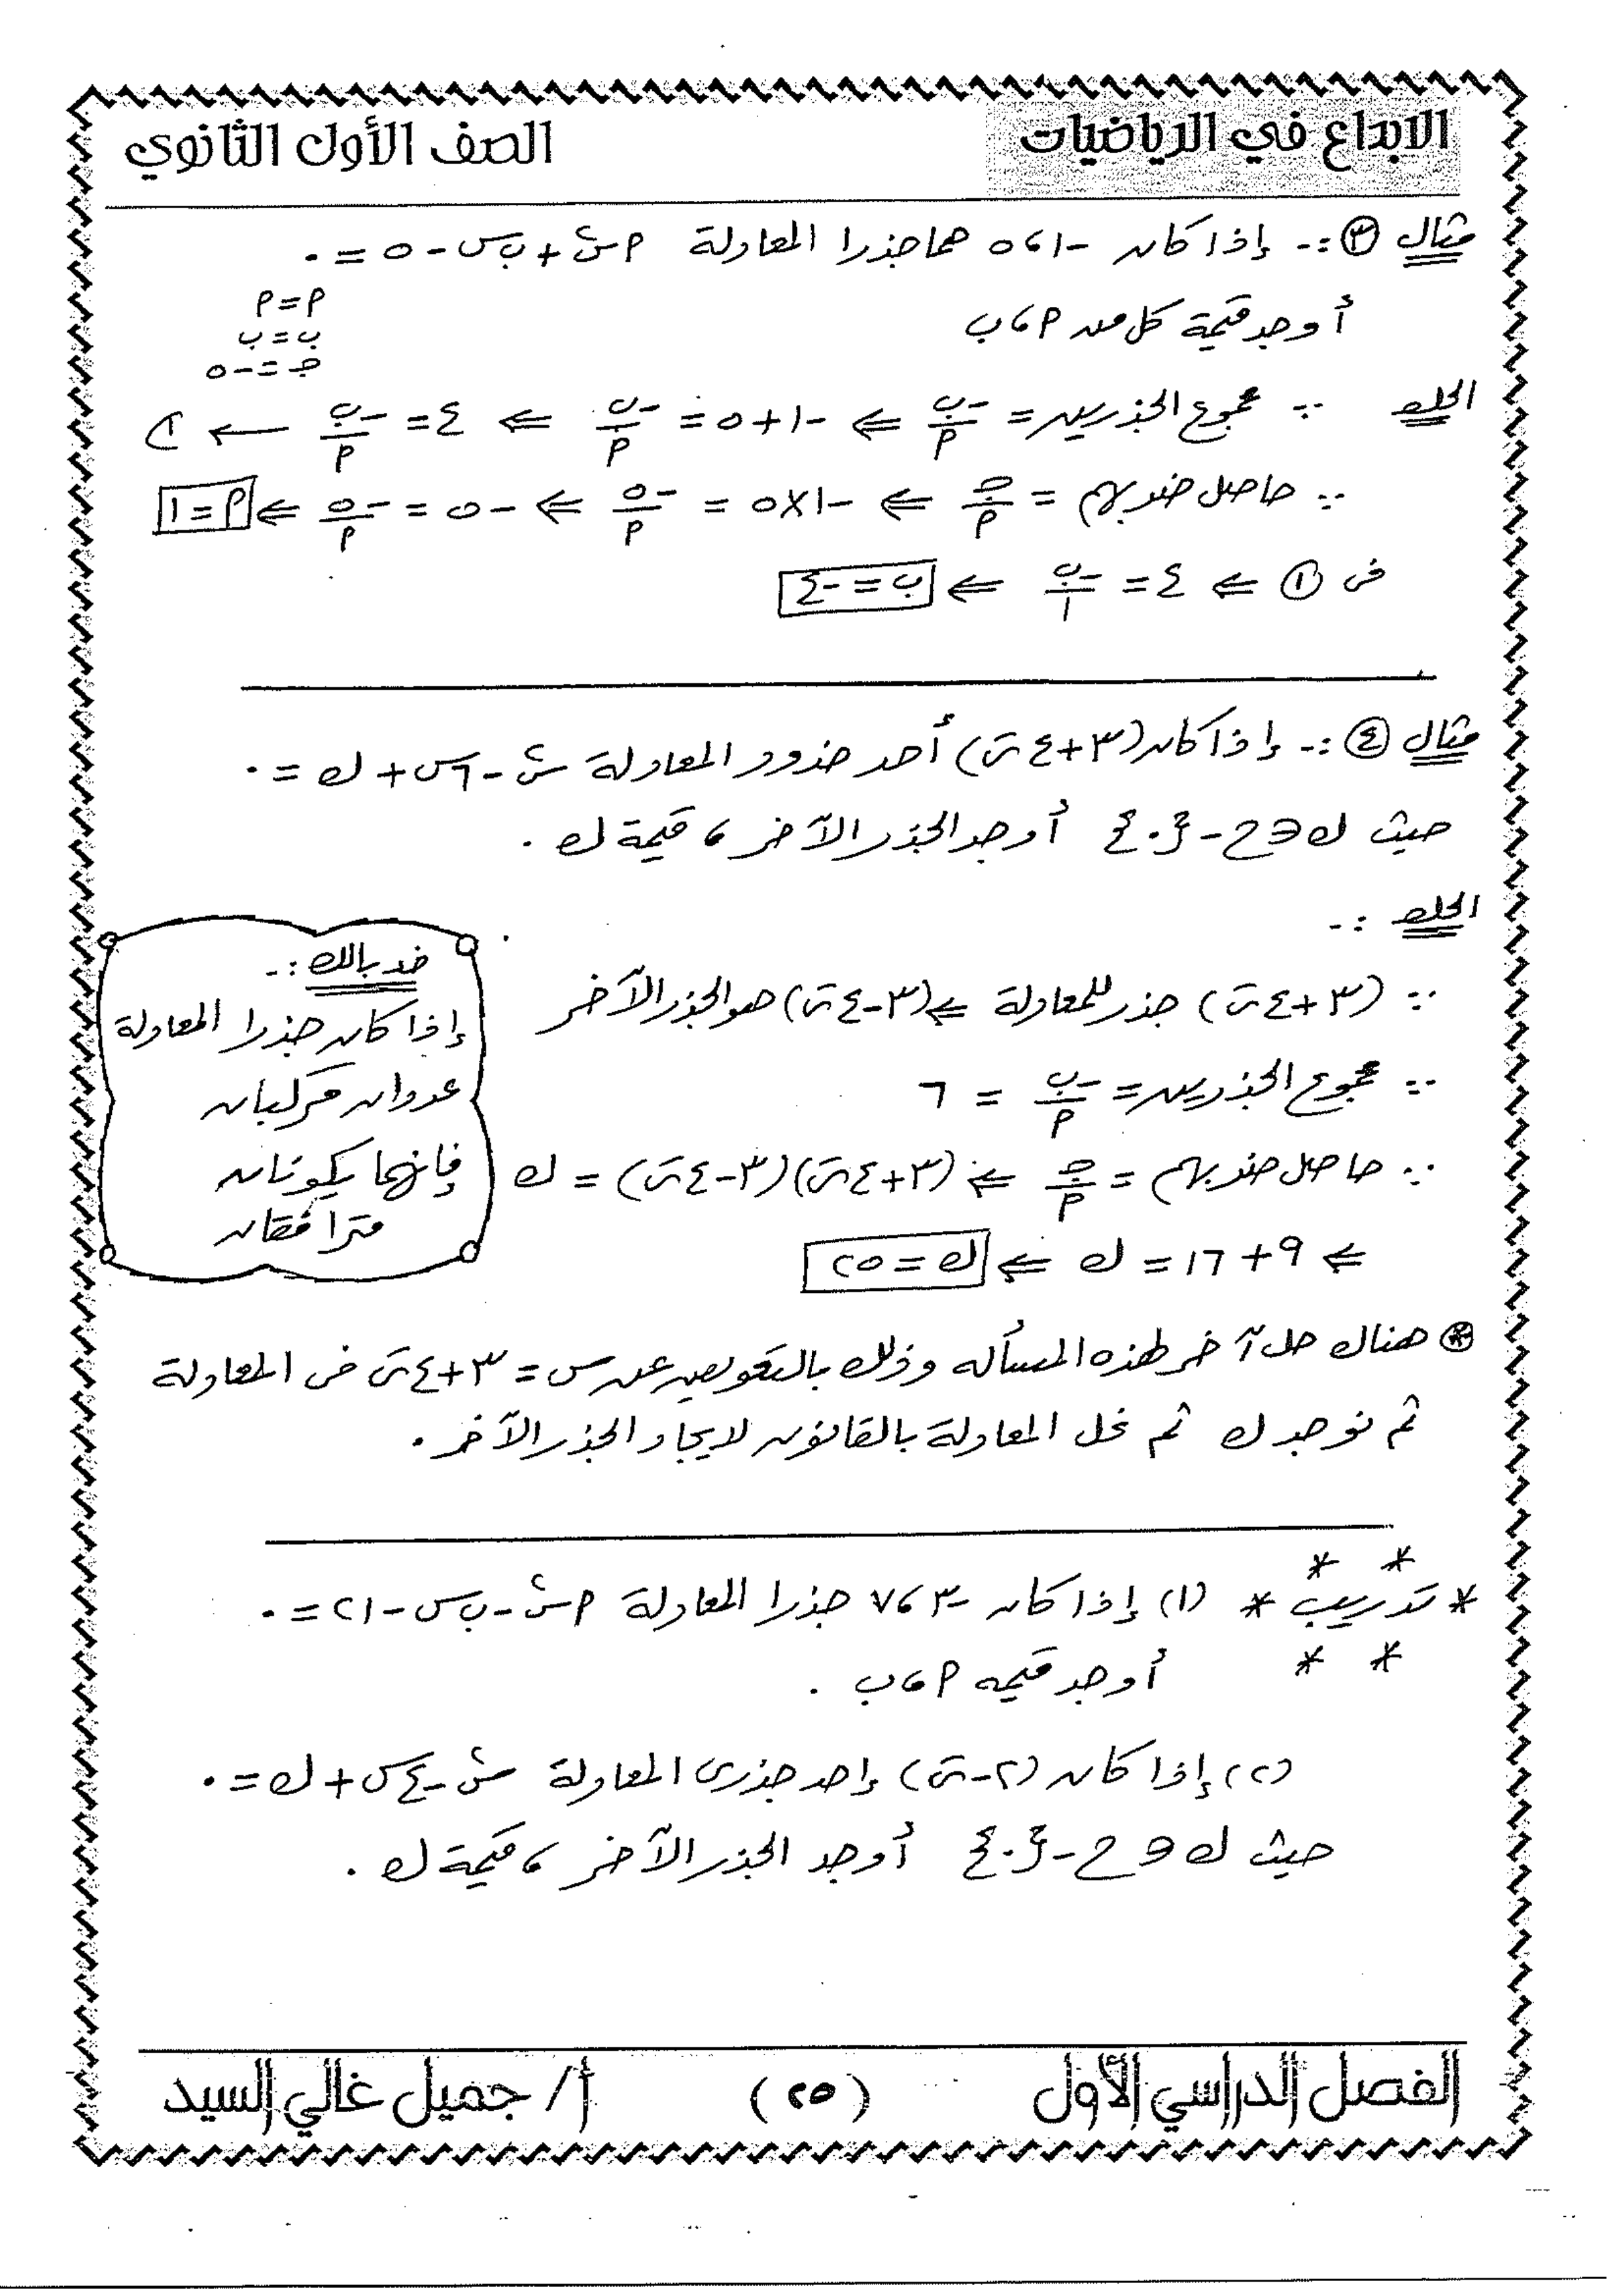 الابداع في الرياضيات
الصف الأول الثانوي
مثال (٣) :- إذا كان -١ ، ٥ هما جذرا المعادلة م س٢ + ب س - ٥ = ٠
أوجد قيمة كل من م ، ب
م = م
ب = ب
جـ = -٥
الحل ∵ مجموع الجذرين = -ب/م ⇐ -١ + ٥ = -ب/م ⇐ ٤ = -ب/م ← (١)
∵ حاصل ضربهم = جـ/م ⇐ -١ × ٥ = -٥/م ⇐ -٥ = -٥/م ⇐ م = ١
فى (١) ⇐ ٤ = -ب/١ ⇐ ب = -٤
مثال (٤) :- إذا كان (٣ + ٤ ت) أحد جذور المعادلة س٢ - ٦ س + ك = ٠
حيث ك ∈ ح - {٠} أوجد الجذر الآخر ، قيمة ك .
الحل :-
∵ (٣ + ٤ ت) جذر للمعادلة ⇐ (٣ - ٤ ت) هو الجذر الآخر
∵ مجموع الجذرين = -ب/م = ٦
∵ حاصل ضربهم = جـ/م ⇐ (٣ + ٤ ت)(٣ - ٤ ت) = ك
⇐ ٩ + ١٦ = ك ⇐ ك = ٢٥
خد بالك :-
إذا كان جذرا المعادلة
عددان مركبان
فإنهما يكونان
مترافقان
* هناك حل آخر لهذه المسأله وذلك بالتعويض عن س = ٣ + ٤ ت فى المعادلة
ثم نوجد ك ثم نحل المعادلة بالقانون لايجاد الجذر الآخر .
* تدريب * (١) إذا كان -٣ ، ٧ جذرا المعادلة م س٢ - ب س - ٢١ = ٠
أوجد قيمه م ، ب .
(٢) إذا كان (٢ - ت) إحد جذرى المعادلة س٢ - ٤ س + ك = ٠
حيث ك ∈ ح - {٠} أوجد الجذر الآخر ، قيمة ك .
الفصل الدراسي الأول
(٢٥)
أ/ جميل غالي السيد